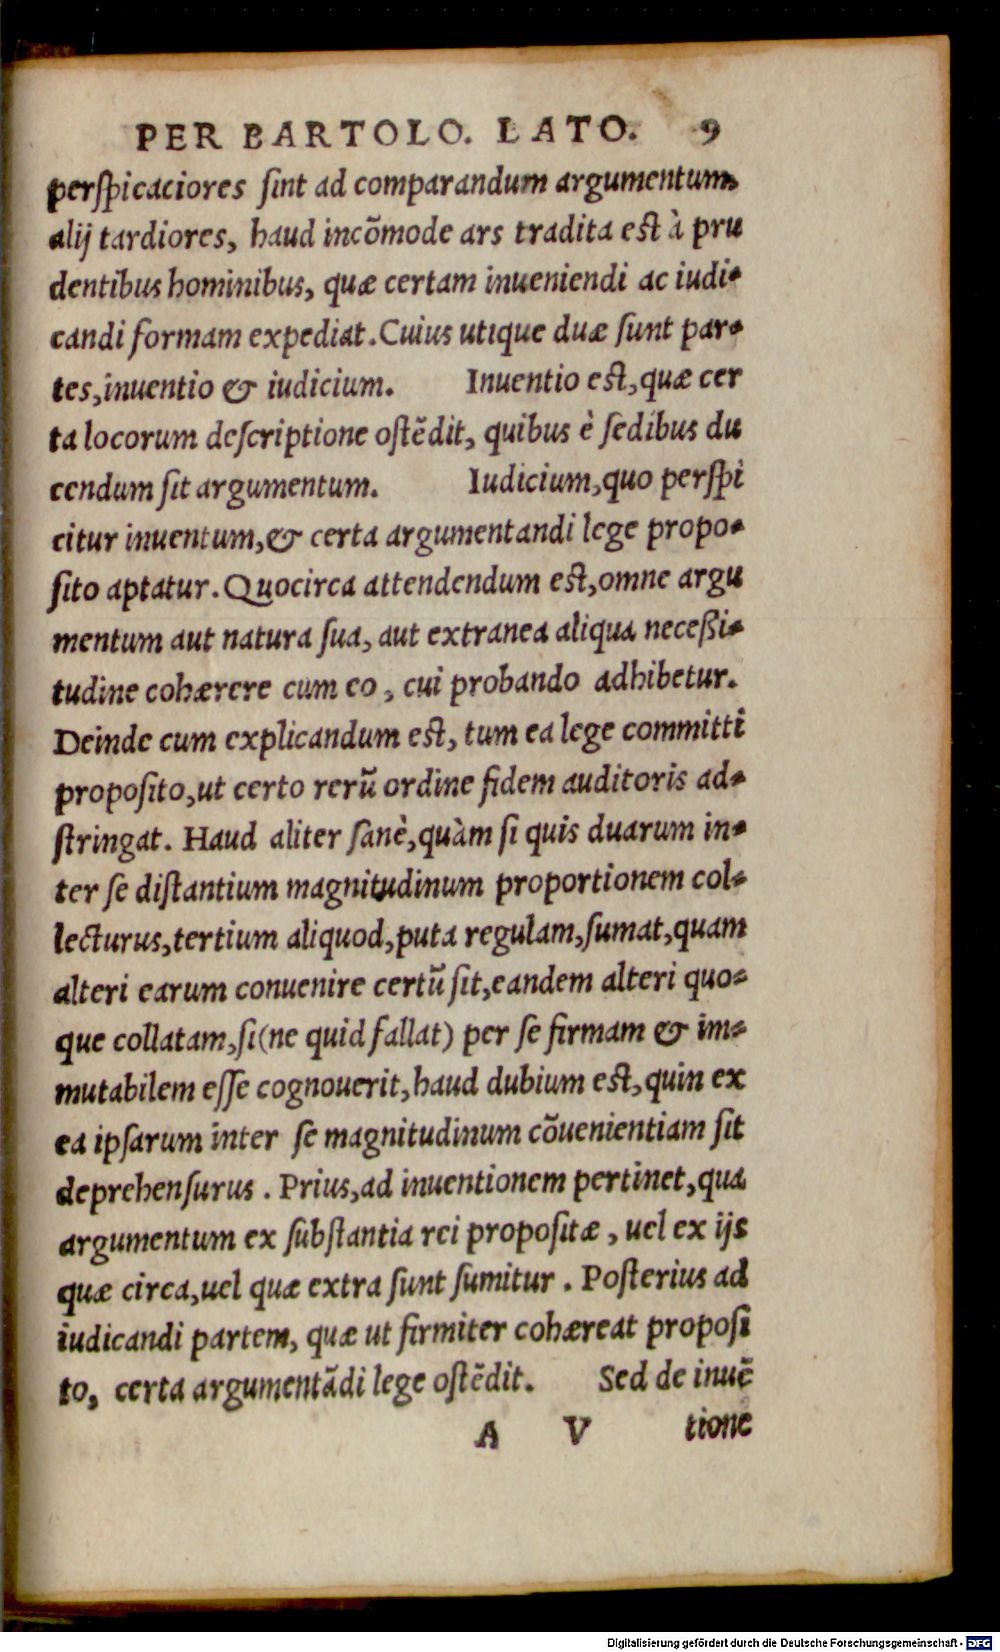 PER BARTOLO. LATO. 9
perſpicaciores ſint ad comparandum argumentum,
alij tardiores, haud incõmode ars tradita est à pru
dentibus hominibus, quæ certam inueniendi ac iudi-
candi formam expediat. Cuius utique duæ ſunt par-
tes, inuentio & iudicium. Inuentio est, quæ cer
ta locorum deſcriptione oſtẽdit, quibus è ſedibus du
cendum ſit argumentum. Iudicium, quo perſpi
citur inuentum, & certa argumentandi lege propo-
ſito aptatur. Quocirca attendendum est, omne argu
mentum aut natura ſua, aut extranea aliqua neceßi-
tudine cohærere cum eo, cui probando adhibetur.
Deinde cum explicandum est, tum ea lege committi
propoſito, ut certo rerũ ordine fidem auditoris ad-
ſtringat. Haud aliter ſanè, quàm ſi quis duarum in-
ter ſe diſtantium magnitudinum proportionem col-
lecturus, tertium aliquod, puta regulam, ſumat, quam
alteri earum conuenire certũ ſit, eandem alteri quo-
que collatam, ſi (ne quid fallat) per ſe firmam & im-
mutabilem eſſe cognouerit, haud dubium est, quin ex
ea ipſarum inter ſe magnitudinum cõuenientiam ſit
deprehenſurus. Prius, ad inuentionem pertinet, qua
argumentum ex ſubſtantia rei propoſitæ, uel ex ijs
quæ circa, uel quæ extra ſunt ſumitur. Poſterius ad
iudicandi partem, quæ ut firmiter cohæreat propoſi
to, certa argumentãdi lege oſtẽdit. Sed de inuẽ
A V tione
Digitalisierung gefördert durch die Deutsche Forschungsgemeinschaft - DFG